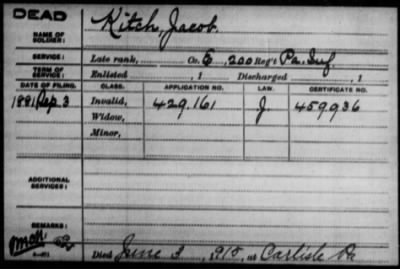 DEAD
NAME OF SOLDIER: Kitch, Jacob.
SERVICE: Late rank, Co. E, 200 Reg't Pa. Inf.
TERM OF SERVICE: Enlisted , 1 Discharged , 1
DATE OF FILING. CLASS. APPLICATION NO. LAW. CERTIFICATE NO.
1881 Sep 3 Invalid, 429.161 J. 459936
Widow,
Minor,
ADDITIONAL SERVICES:
REMARKS:
Died June 3, 1915, at Carlisle Pa